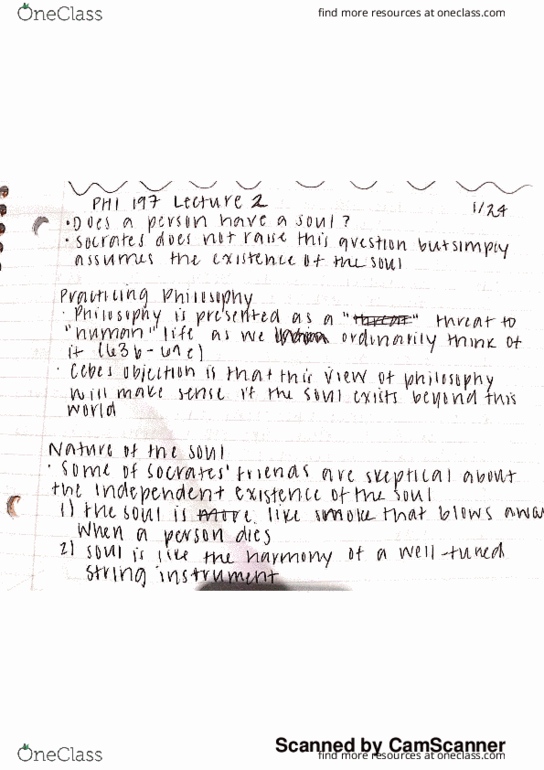 OneClass
find more resources at oneclass.com
PHI 197 Lecture 2
1/24
• Does a person have a soul?
• Socrates does not raise this question but simply
assumes the existence of the soul
Practicing Philosophy
• Philosophy is presented as a "threat" threat to
"human" life as we ordinarily think of
it (63b-69e)
• Cebes objection is that this view of philosophy
will make sense if the soul exists beyond this
world
Nature of the soul
• Some of Socrates' friends are skeptical about
the independent existence of the soul
1) the soul is more like smoke that blows away
when a person dies
2) soul is like the harmony of a well-tuned
string instrument
Scanned by CamScanner
OneClass
find more resources at oneclass.com